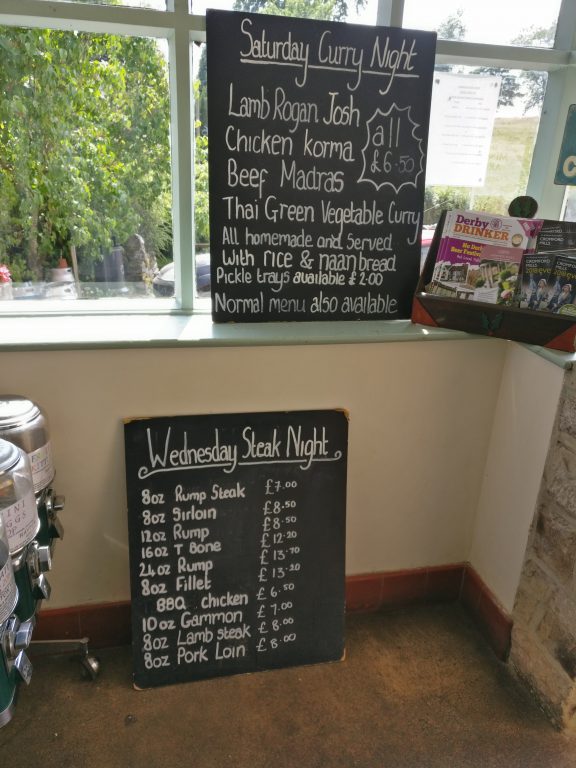 Saturday Curry Night
Lamb Rogan Josh
Chicken korma
Beef Madras
all
£6.50
Thai Green Vegetable Curry
All homemade and served
With rice & naan bread
Pickle trays available £2.00
Normal menu also available
Derby
DRINKER
CROMFORD
CROMFORD
Wednesday Steak Night
8oz Rump Steak £7.00
8oz Sirloin £8.50
12oz Rump £8.50
16oz T Bone £12.20
24oz Rump £13.70
8oz Fillet £13.20
BBQ chicken £6.50
10oz Gammon £7.00
8oz Lamb steak £8.00
8oz Pork Loin £8.00